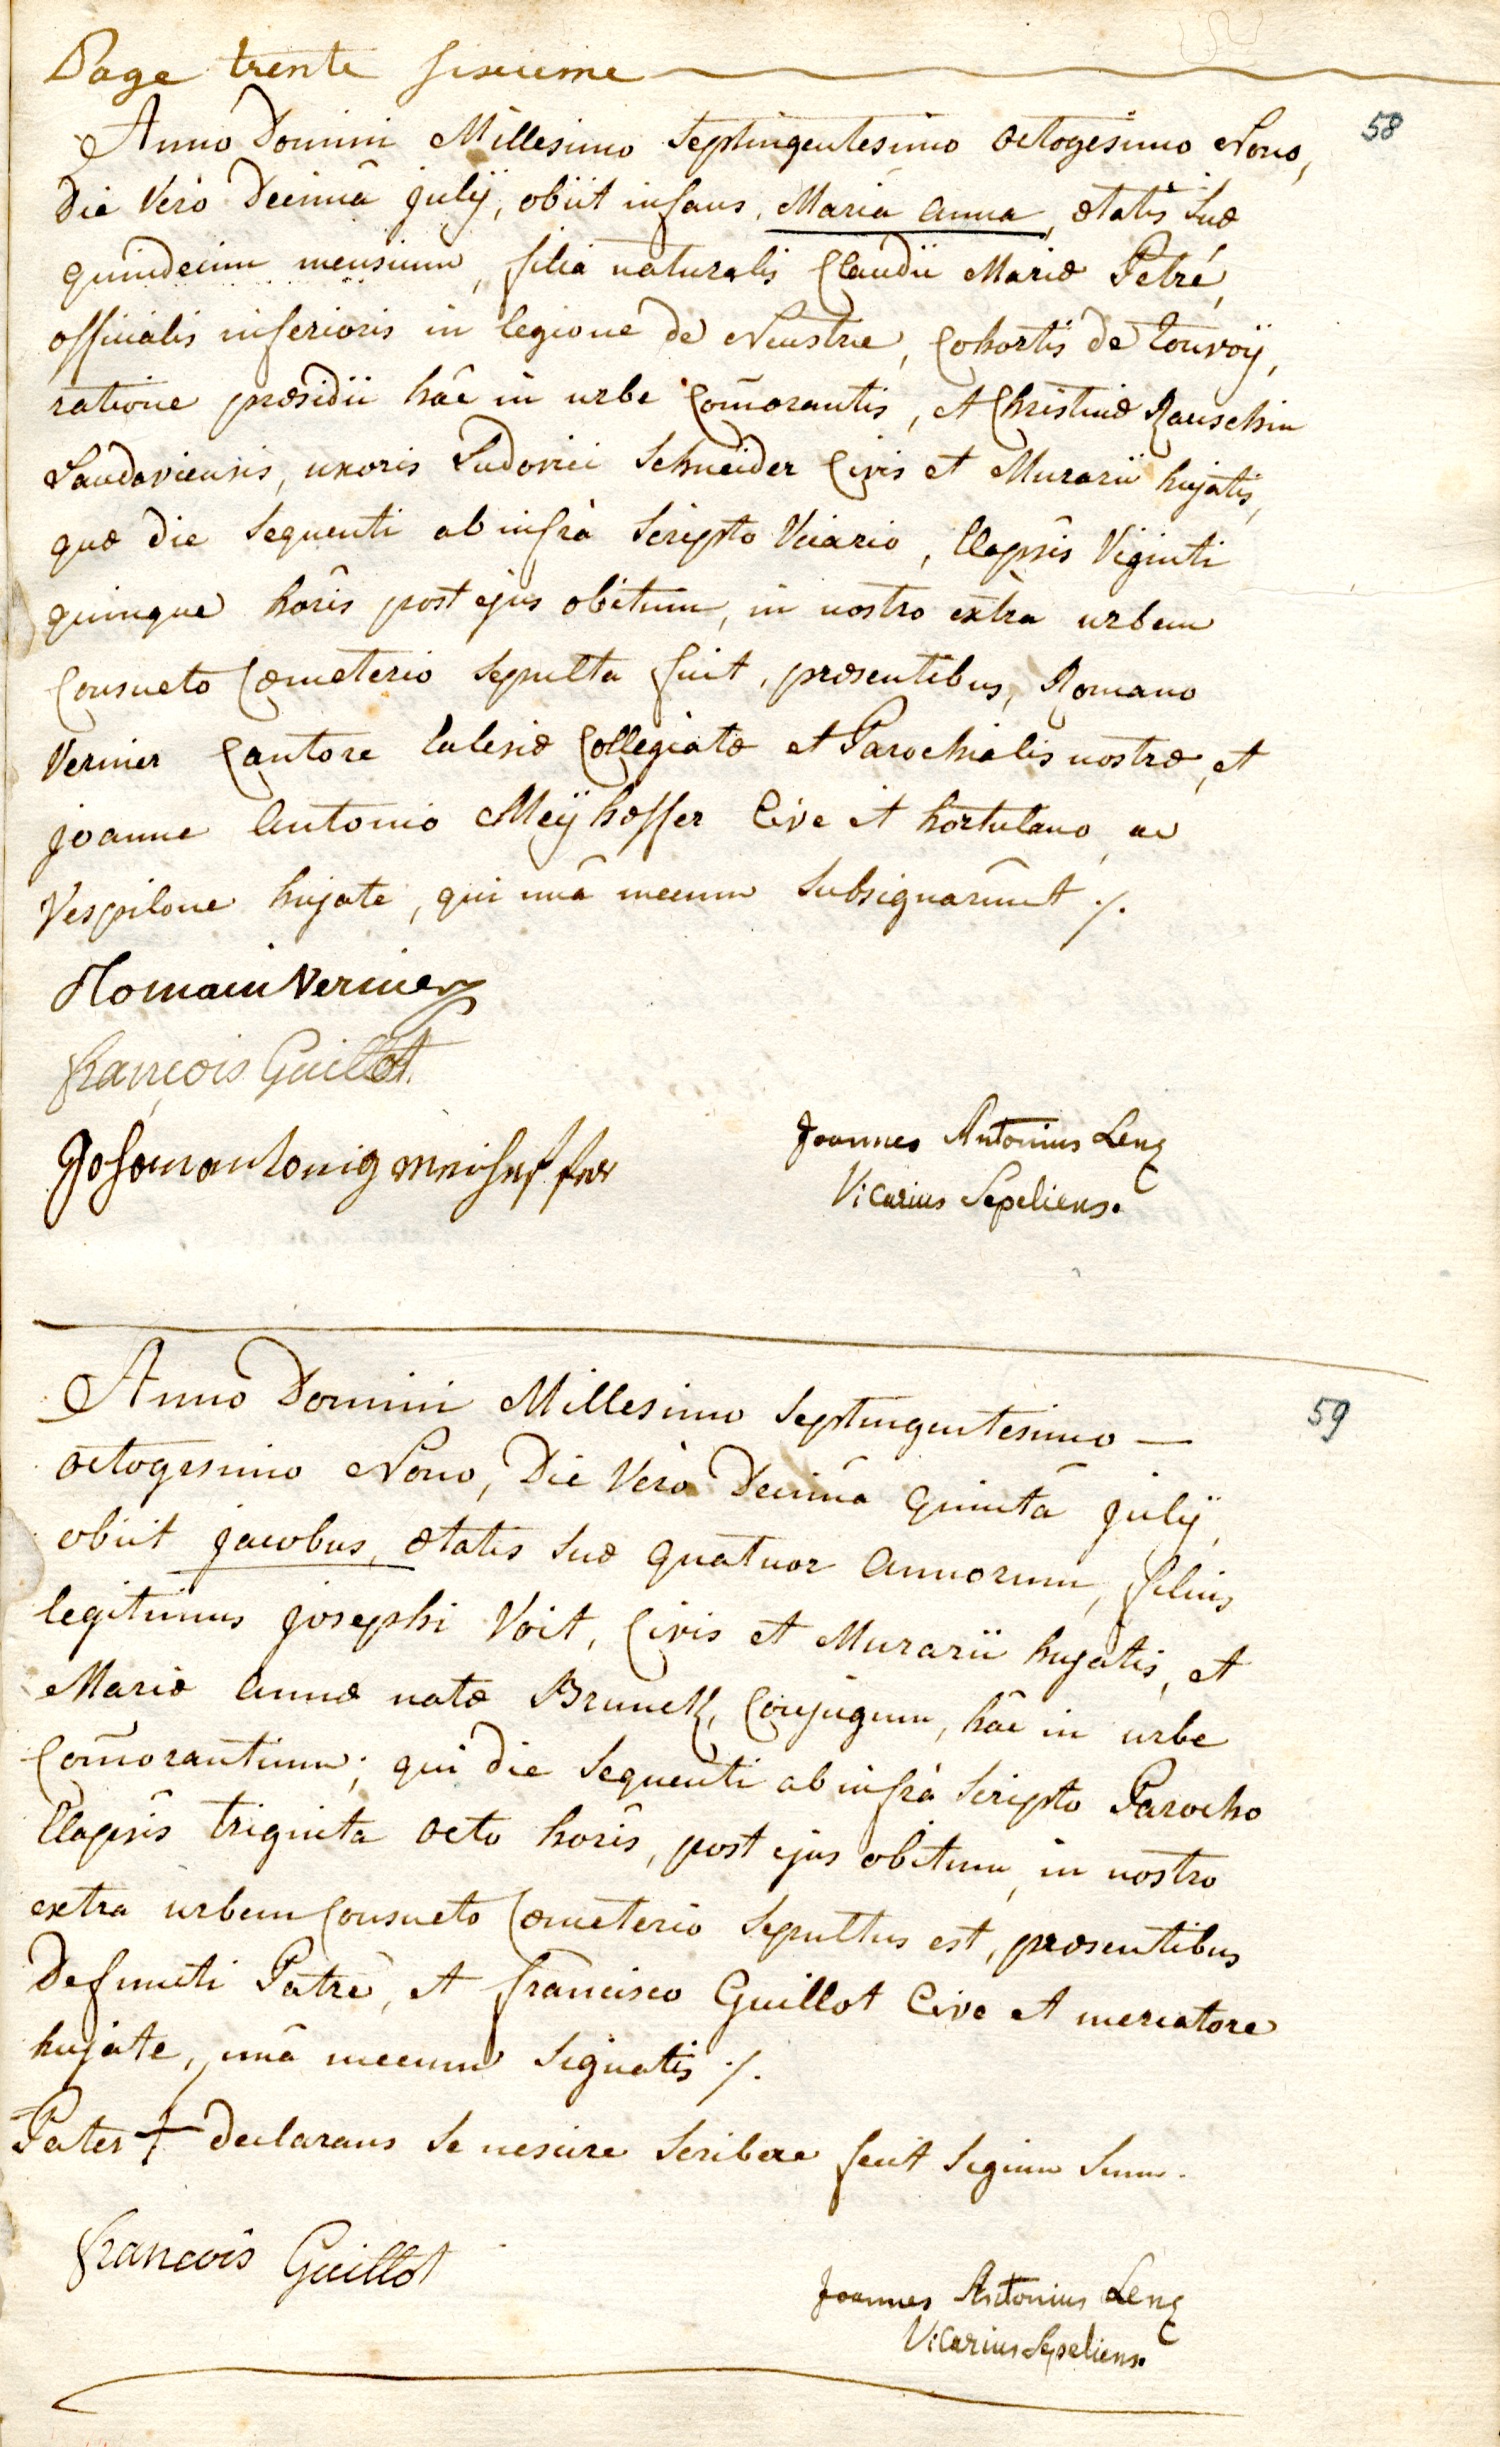 Page trente sixieme
58
Anno Domini Millesimo Septingentesimo octogesimo Nono,
Die Verò Decimâ julÿ, obiit infans, Maria anna, ætatis suæ
quindecim mensium, filia naturalis Claudii Mariæ Petré,
officialis inferioris in legione de Neustrie, Cohortis de Tourvoÿ,
ratione præsidii hâc in urbe Com̄orantis, et Christinæ Rauschin
Landaviensis, uxoris Ludovici Schneider Civis et Murarii hujatis,
quæ die sequenti ab infrà scripto Vicario, Elapsis Viginti
quinque horis post ejus obitum, in nostro extra urbem
Consueto Cæmeterio sepulta fuit, præsentibus, Romano
Vernier Cantore Ecclesiæ Collegiatæ et Parochialis nostræ, et
joanne antonio Meÿhoffer Cive et hortulano, ac
Vespilone hujate, qui unâ mecum subsignarunt ./.
Romain Vernier
françois Guillot
Johann antonig meihoffer
Joannes Antonius Lenz
Vicarius Sepeliens.
59
Anno Domini Millesimo Septingentesimo —
octogesimo Nono, Die Verò Decimâ quintâ julÿ,
obiit jacobus, ætatis suæ quatuor annorum, filius
legitimus josephi Voit, Civis et Murarii hujatis, et
Mariæ annæ natæ Brunck, Conjugum, hâc in urbe
Com̄orantium; qui die sequenti ab infrà scripto Parocho
Elapsis triginta octo horis, post ejus obitum, in nostro
extra urbem Consueto Cæmeterio sepultus est, præsentibus
Defuncti Patre, et francisco Guillot Cive et mercatore
hujate, unâ mecum signatis ./.
Pater + declarans se nescire scribere fecit signum suum.
francois Guillot
Joannes Antonius Lenz
Vicarius Sepeliens.